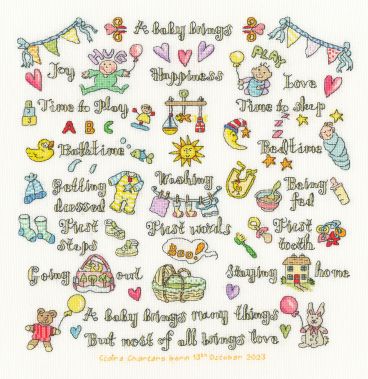 A Baby Brings
HUG
PLAY
Joy
Happiness
Love
Time to Play
Time to sleep
A B C
Bathtime
Bedtime
Getting dressed
Washing
Being fed
First steps
First words
First tooth
BOO!
Going out
Staying home
A Baby Brings many things
But most of all brings love
Claire Charters born 13th October 2023